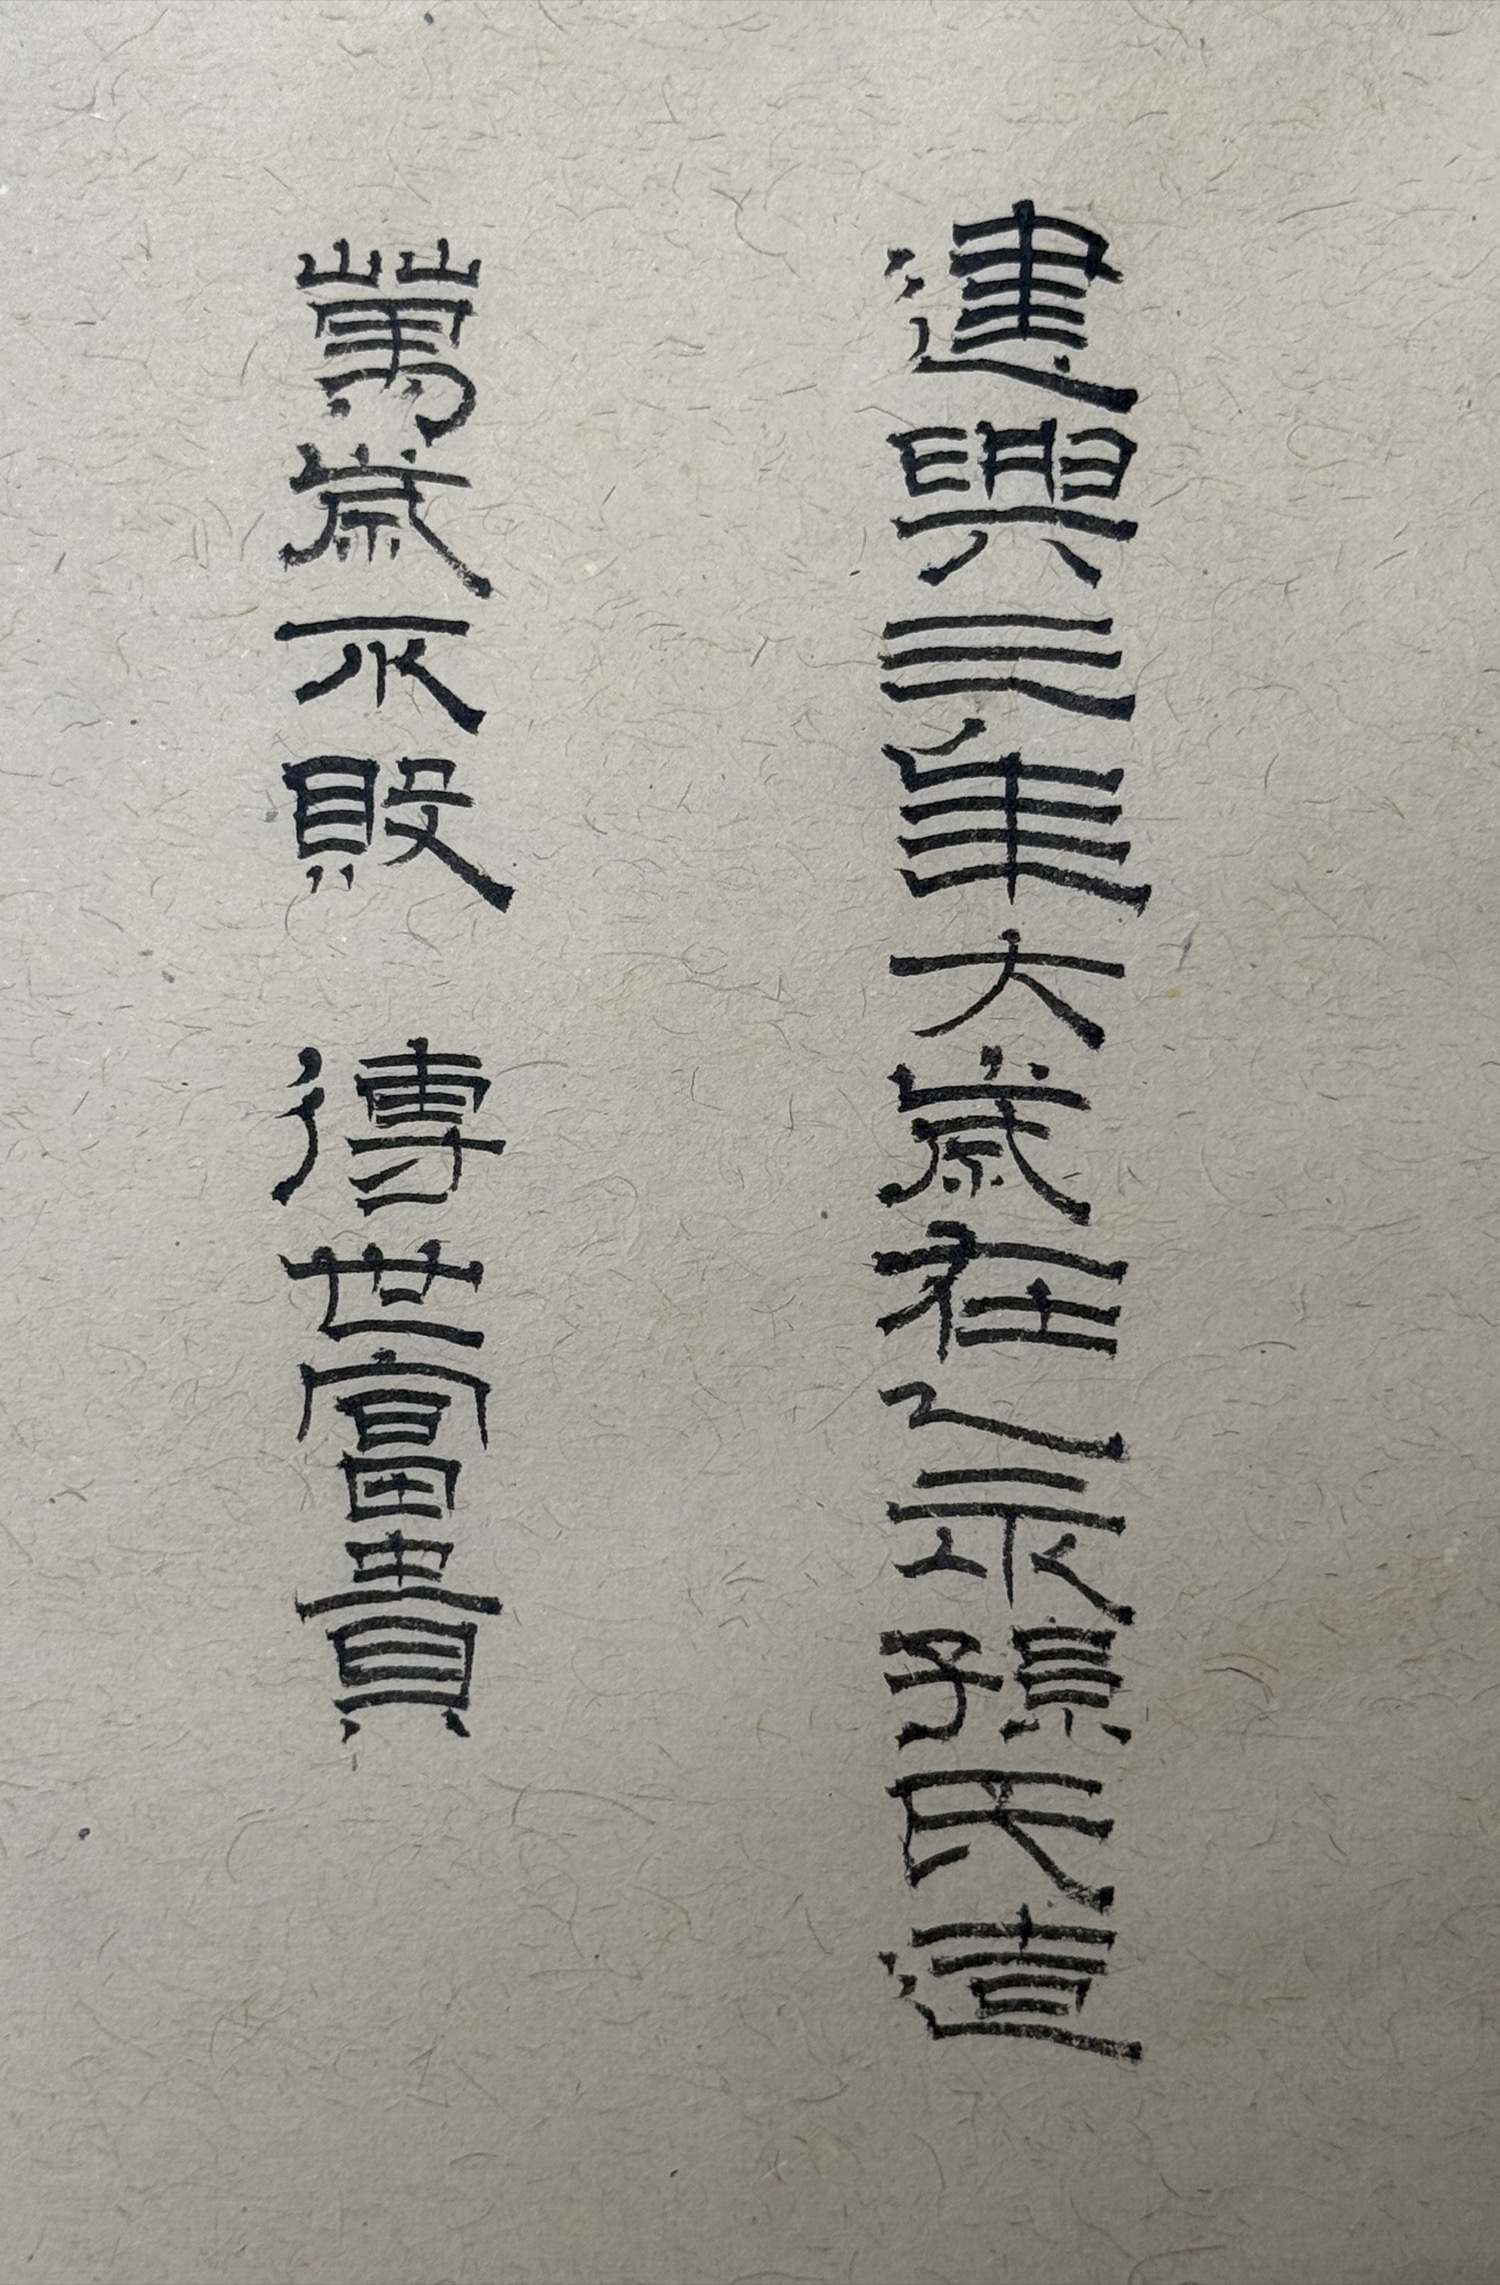 建興三年大歲在乙亥孫氏造
萬歲不敗 傳世富貴